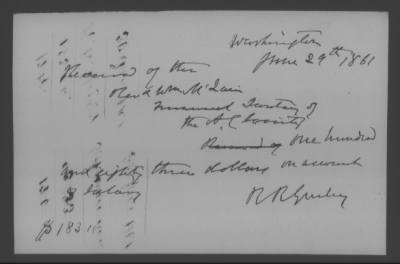 Washington
June 29th 1861
Received of the
Revd Wm McLain
Financial Secretary of
the A. C. Society
Received of One hundred
and eighty three dollars on account
of salary
$183
R R Gurley